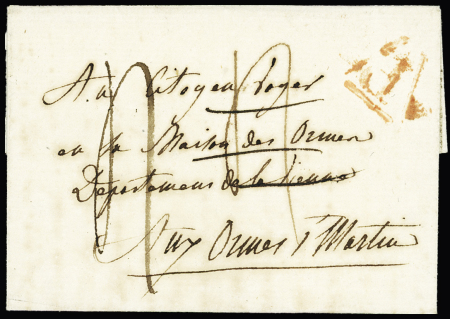 Au Citoyen Roger
en sa Maison des Ormes
Departement de la Vienne
Aux Ormes St Martin